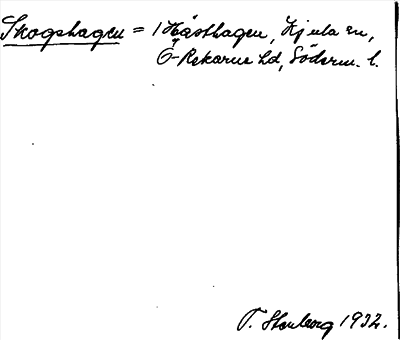 Skogshagen = 1 Hästhagen, Kjula sn,
Ö-Rekarne hd, Söderm. l.
T. Stenborg 1932.